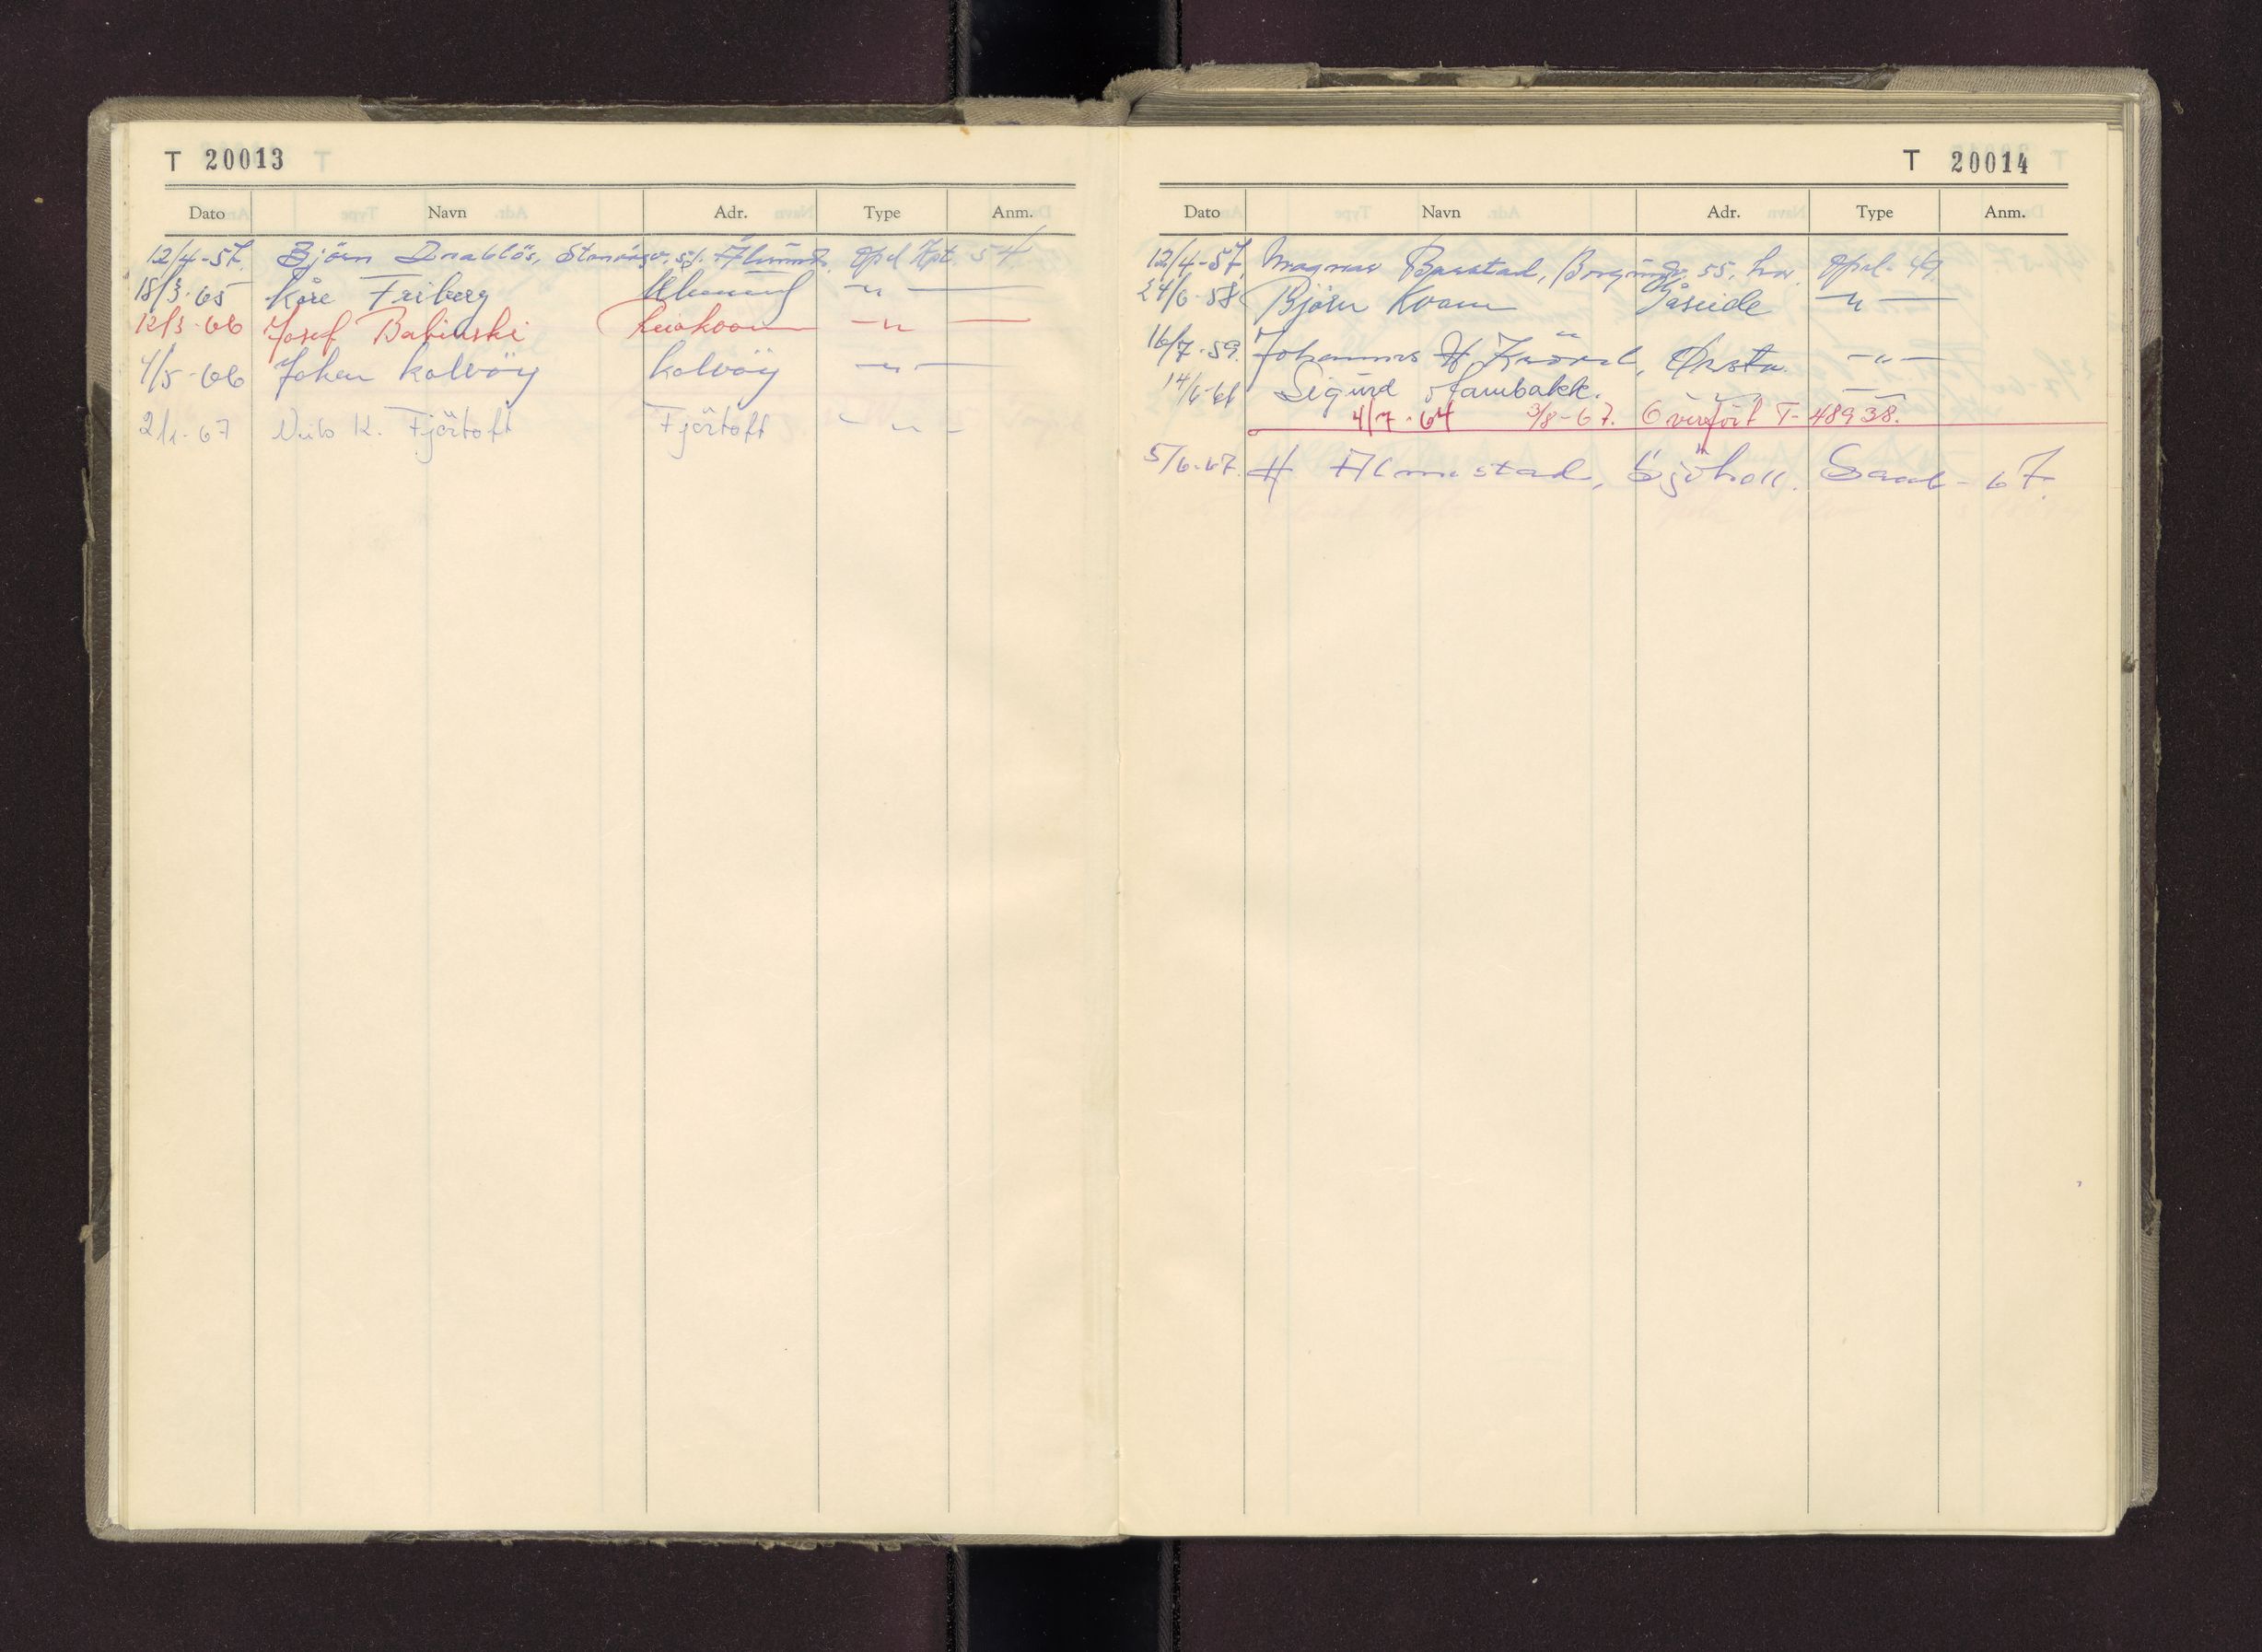 T 20013
Dato Navn Adr. Type Anm.
12/4-57. Björn Drabløs, 51. Ålesund. Opel Kpt 54.
18/3-65 Kåre Friberg Ålesund -"-
12/3-66 Josef Babinski -"-
4/5-66 Johan Kalvöy Kalvöy -"-
2/1-67 Nils K. Fjörtoft Fjörtoft -"-
T 20014
Dato Navn Adr. Type Anm.
12/4-57. Magnar Baastad, Borgundv. 55, her. Opel-49.
24/6-58 Björn Kvam Gåseide -"-
16/7-59. Johannes Ørsta -"-
14/6-61 Sigurd Hambakk.
4/7-64 3/8-67. Överfört T-48938.
5/6-67. H Almestad, Sjöholt. Saab-67.